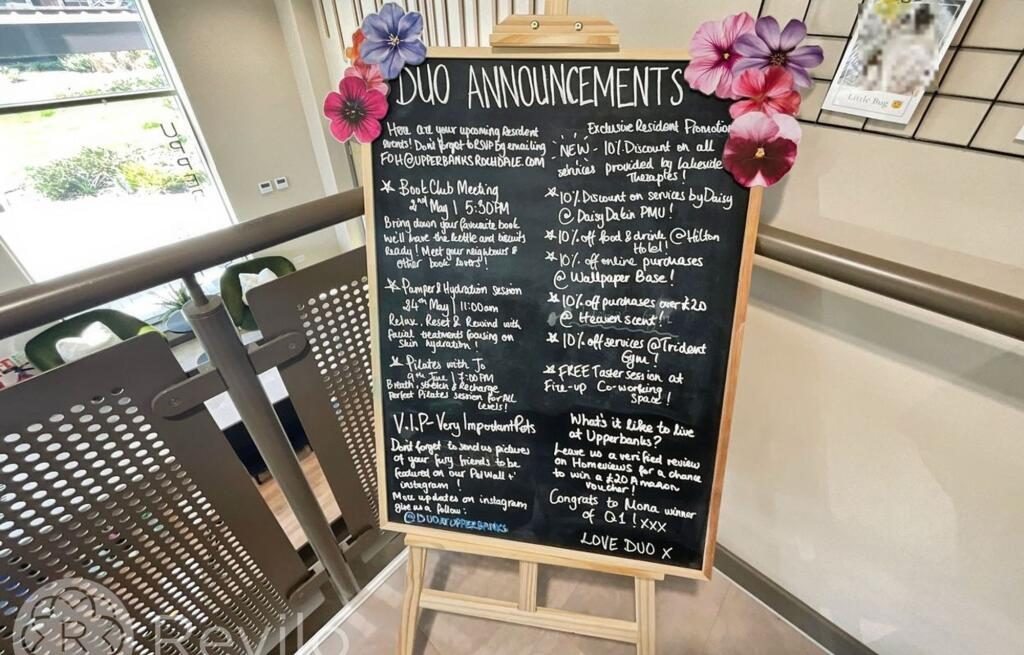 DUO ANNOUNCEMENTS
Here are your upcoming Resident
events! Don't forget to RSVP by emailing
FOH@UPPERBANKSROCHDALE.COM
Book Club Meeting
2nd May | 5:30PM
Bring down your favourite book
we'll have the kettle and biscuits
Ready! Meet your neighbours &
other book lovers!
Pamper & Hydration session
24th May | 11:00am
Relax, Reset & Rewind with
facial treatments focusing on
Skin hydration!
Pilates with Jo
9th June | 7:00PM
Breath, stretch & Recharge
Perfect Pilates session for ALL
levels!
V.I.P - Very Important Pets
Don't forget to send us pictures
of your furry friends to be
featured on our Pet Wall +
instagram!
More updates on instagram
give us a follow:
@DUOATUPPERBANKS
Exclusive Resident Promotion
NEW - 10% Discount on all
services provided by Lakeside
Therapies!
10% Discount on services by Daisy
@ Daisy Dakin PMU!
10% off food & drink @ Hilton
Hotel!
10% off online purchases
@ Wallpaper Base!
10% off purchases over £20
@ Heaven scent!
10% off services @ Trident
Gym!
FREE Taster Session at
Fire-up Co-working
Space!
What's it like to live
at Upperbanks?
Leave us a verified review
on Homeviews for a chance
to win a £20 Amazon
voucher!
Congrats to Mona winner
of Q1! xxx
LOVE DUO X
Little Bug
UPPER
R
Revilo